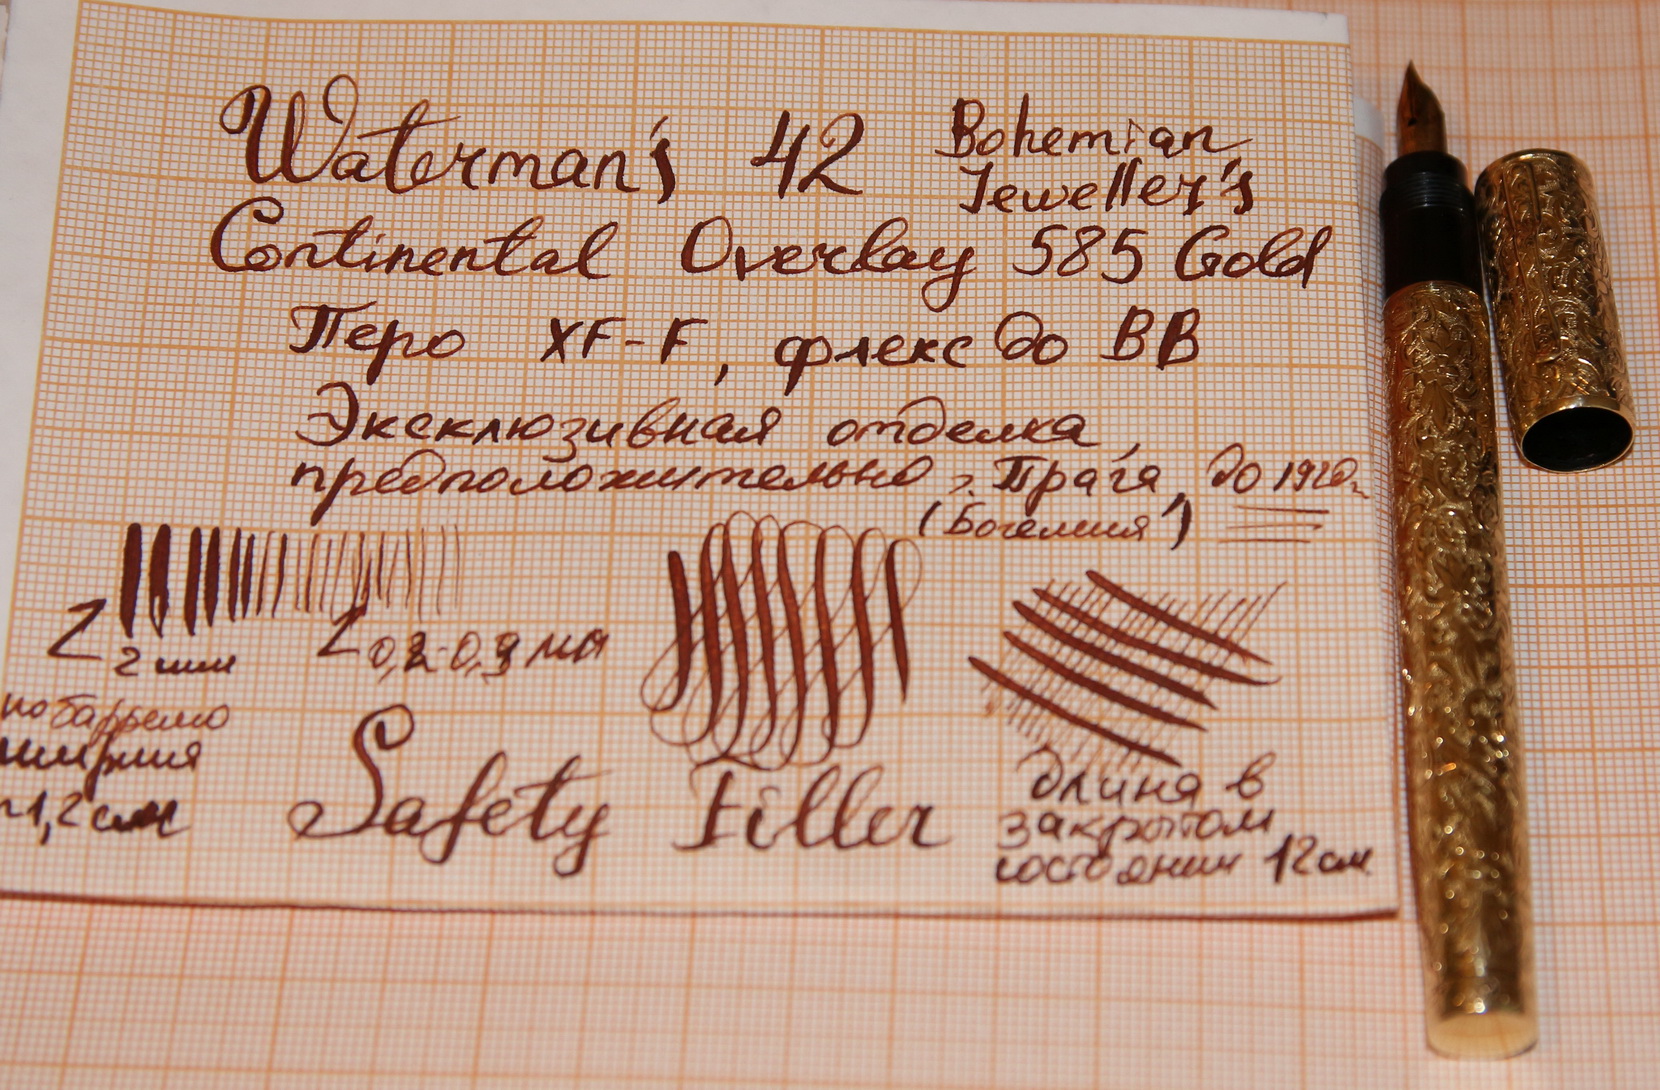 Waterman's 42 Bohemian Jeweller's
Continental Overlay 585 Gold
Перо XF-F, флекс до BB
Эксклюзивная отделка,
предположительно, Прага, до 1920г.
(Богемия)
2 мм
0,2-0,3 мм
по баррелю
ширина
~1,2 см
Safety Filler
длина в
закрытом
состоянии 12 см